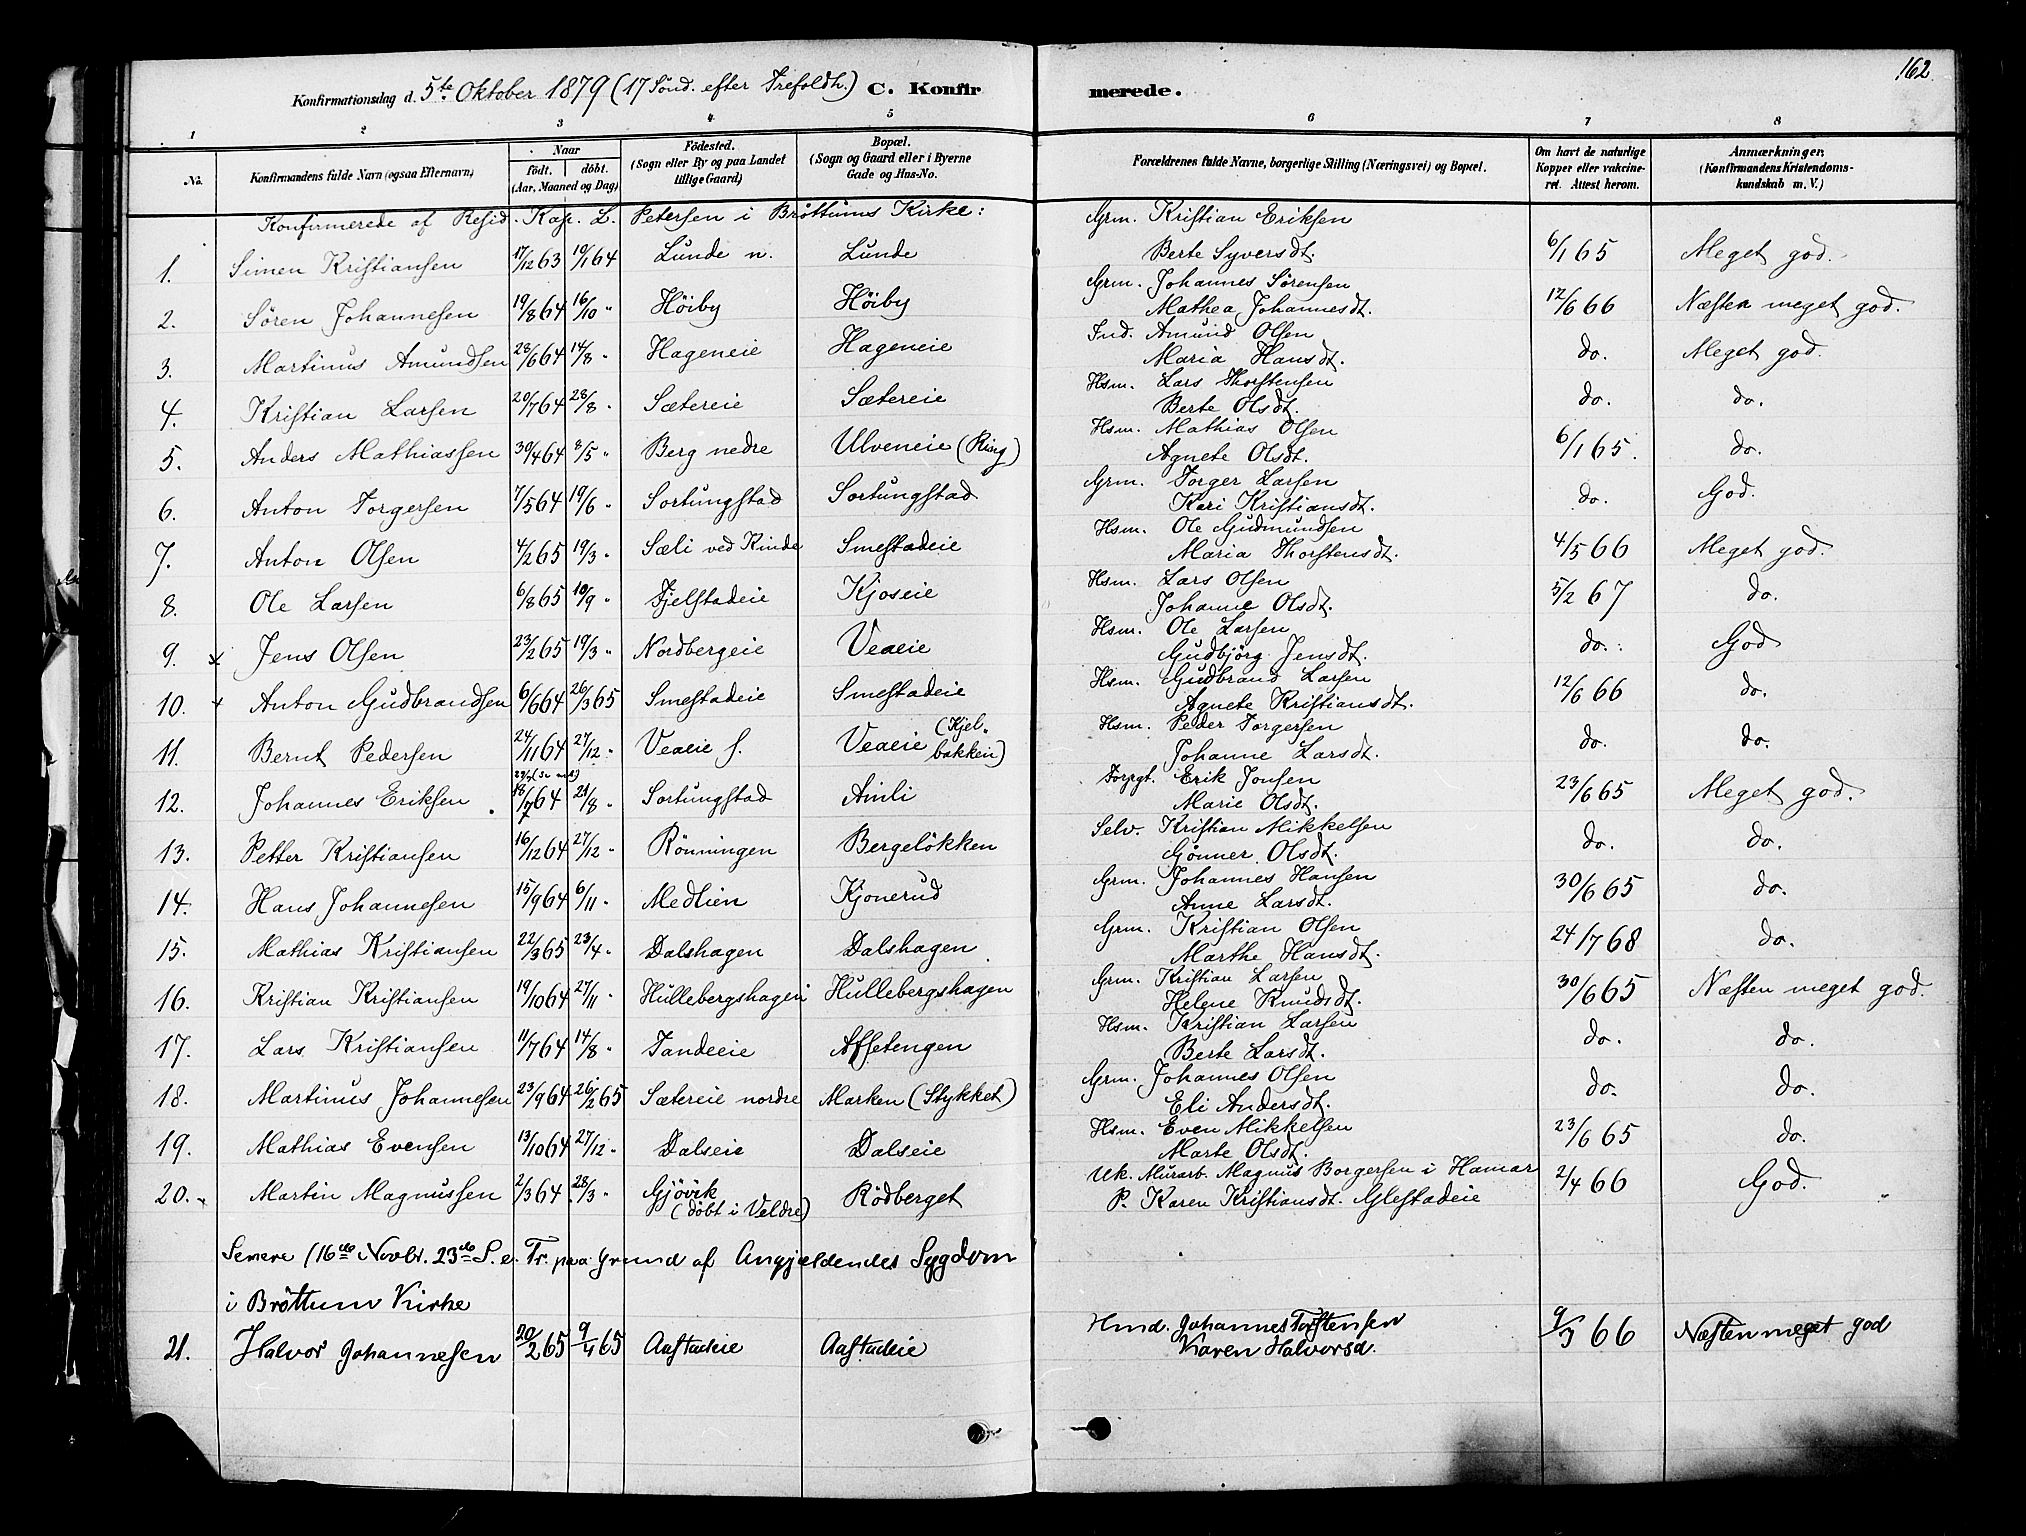 162.
Konfirmationsdag d. 5te Oktober 1879 (17 Sönd. efter Trefoldh.) C. Konfirmerede.
1 2 3 4 5 6 7 8
No. Konfirmandens fulde Navn (ogsaa Efternavn) Naar født. døbt. (Aar, Maaned og Dag) Födested. (Sogn eller By og paa Landet tillige Gaard) Bopæl. (Sogn og Gaard eller i Byerne Gade og Hus-No. Forældrenes fulde Navne, borgerlige Stilling (Næringsvei) og Bopæl. Om havt de naturlige Kopper eller vakcineret. Attest herom. Anmærkninger. (Konfirmandens Kristendomskundskab m. V.)
Konfirmerede af Resid. Kap. L. Petersen i Bröttums Kirke:
1. Simen Kristiansen 17/12 63 10/1 64 Lunde n. Lunde Grm. Kristian Eriksen Berte Syversdt. 6/1 65 Meget god.
2. Sören Johannesen 19/8 64 16/10 " Höiby Höiby Grm. Johannes Sörensen Mathea Johannesdt. 12/6 66 Næsten meget god.
3. Martinus Amundsen 28/6 64 14/8 " Hageneie Hageneie Ind. Amund Olsen Maria Hansdt. do. Meget god.
4. Kristian Larsen 20/7 64 28/8 " Sætereie Sætereie Hsm. Lars Thorstensen Berte Olsdt. do. do.
5. Anders Mathiassen 30/4 64 8/5 " Berg nedre Ulveneie (Risy) Hsm. Mathias Olsen Agnete Olsdt. 6/1 65. do.
6. Anton Torgersen 7/5 64 19/6 " Sortungstad Sortungstad Grm. Torger Larsen Kari Kristiansdt. do. God.
7. Anton Olsen 4/2 65 19/3 " Sæli ved Kinde Smestadeie Hsm. Ole Gudmundsen Maria Thorstensdt. 4/5 66 Meget god.
8. Ole Larsen 6/8 65 10/9 " Fjelstadeie Kjoseie Hsm. Lars Olsen Johanne Olsdt. 5/2 67 do.
9. Jens Olsen 23/2 65 19/3 " Nordbergeie Veaeie Hsm. Ole Larsen Gudbjörg Jensdt. do. God
10. Anton Gudbrandsen 6/6 64 26/3 65 Smestadeie Smestadeie Hsm. Gudbrand Larsen Agnete Kristiansdt. 12/6 66 do.
11. Bernt Pedersen 24/11 64 27/12 " Veaeie s. Veaeie (Kjelbakken) Hsm. Peder Torgersen Johanne Larsdt. do. do.
12. Johannes Eriksen 18/7 64 21/8 " Sortungstad Amli Forpgt. Erik Jonsen Marie Olsdt. 23/6 65 Meget god.
13. Petter Kristiansen 16/12 64 27/12 " Rönningen Bergelökken Selv. Kristian Mikkelsen Gönner Olsdt. do. do.
14. Hans Johannesen 15/9 64 6/11 " Medlien Kjonerud Grm. Johannes Hansen Anne Larsdt. 30/6 65 do.
15. Mathias Kristiansen 22/3 65 23/4 " Dalshagen Dalshagen Grm. Kristian Olsen Marthe Hansdt. 24/7 68 do.
16. Kristian Kristiansen 19/10 64 27/11 " Hullebergshagen Hullebergshagen Grm. Kristian Larsen Helene Knudsdt. 30/6 65 Næsten meget god.
17. Lars Kristiansen 11/7 64 14/8 " Tandeeie Assetengen Hsm. Kristian Larsen Berte Larsdt. do. do.
18. Martinus Johannesen 23/9 64 26/2 65 Sætereie nordre Marken (Stykket) Grm. Johannes Olsen Eli Andersdt. do. do.
19. Mathias Evensen 13/10 64 27/12 " Dalseie Dalseie Hsm. Even Mikkelsen Marte Olsdt. 23/6 65 do.
20. Martin Magnussen 2/3 64. 28/3 " Gjövik (döbt i Veldre) Rödberget Uk. Murarb. Magnus Borgersen i Hamar P. Karen Kristiansdt. Glestadeie 2/4 66 God.
Senere (16de Novbr. 23de S. e. Tr. paa Grund af Angjældendes Sygdom
i Bröttum Kirke
21. Halvor Johannesen 20/2 65 9/4 65 Aastadeie Aastadeie Hmd. Johannes Torstensen Karen Halvorsd. 9/7 66 Næsten meget god